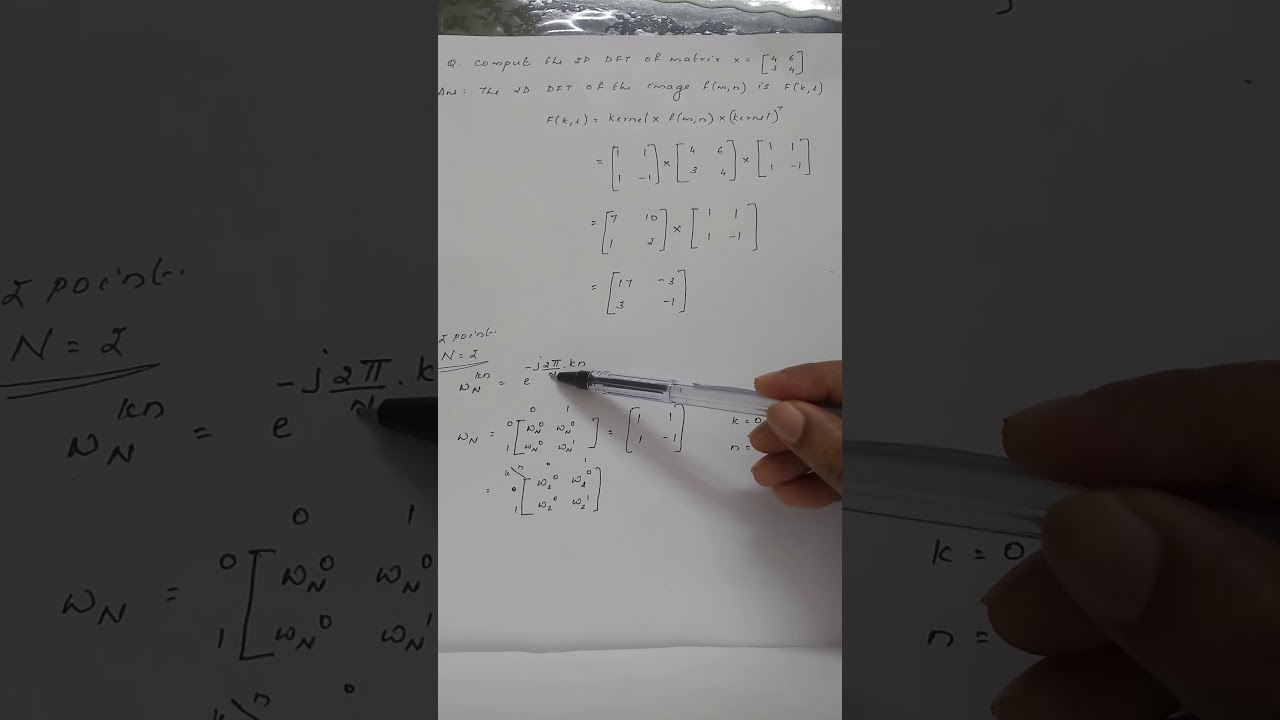 Q. Comput the 2D DFT of matrix x = [4 6
3 4]
Ans: The 2D DFT of the image f(m,n) is F(k,l)
F(k,l) = kernel x f(m,n) x (kernel)^T
= [1 1 ] x [4 6 ] x [1 1
1 -1] [3 4] [1 -1]
= [7 10 ] x [1 1
1 2] [1 -1]
= [17 -3
3 -1]
2 point.
N = 2
W_N^{kn} = e^{-j2π/N . kn}
0 1
W_N = 0 [W_N^0 W_N^0 ] = [1 1
1 [W_N^0 W_N^1] [1 -1]
k = 0
n =
k\n 0 1
= 0 [W_2^0 W_2^0
1 [W_2^0 W_2^1]